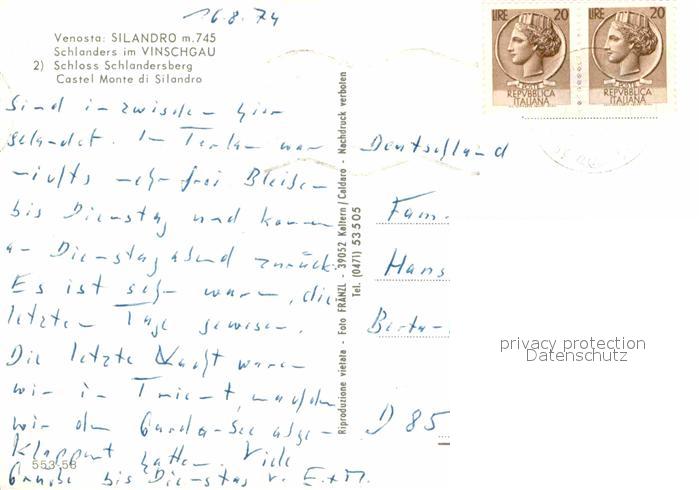 16.8.74
Venosta: SILANDRO m.745
Schlanders im VINSCHGAU
2) Schloss Schlandersberg
Castel Monte di Silandro
Sind inzwischen hier
gelandet. In Terlan war
nichts mehr frei. Bleiben
bis Dienstag und kommen
am Dienstag abend zurück.
Es ist sehr warm, die
letzten Tage gewesen.
Die letzte Nacht waren
wir in Trient, nachdem
wir den Garda-See abge-
klappert hatten. Viele
Grüße bis Dienstag v. E+M.
553-58
Riproduzione vietata - Foto FRÄNZL - 39052 Kaltern/Caldaro - Nachdruck verboten
Tel. (0471) 53505
LIRE 20
POSTE
REPVBBLICA
ITALIANA
LIRE 20
POSTE
REPVBBLICA
ITALIANA
Deutschland
Fam.
Hans
Berta-
D 85
privacy protection
Datenschutz